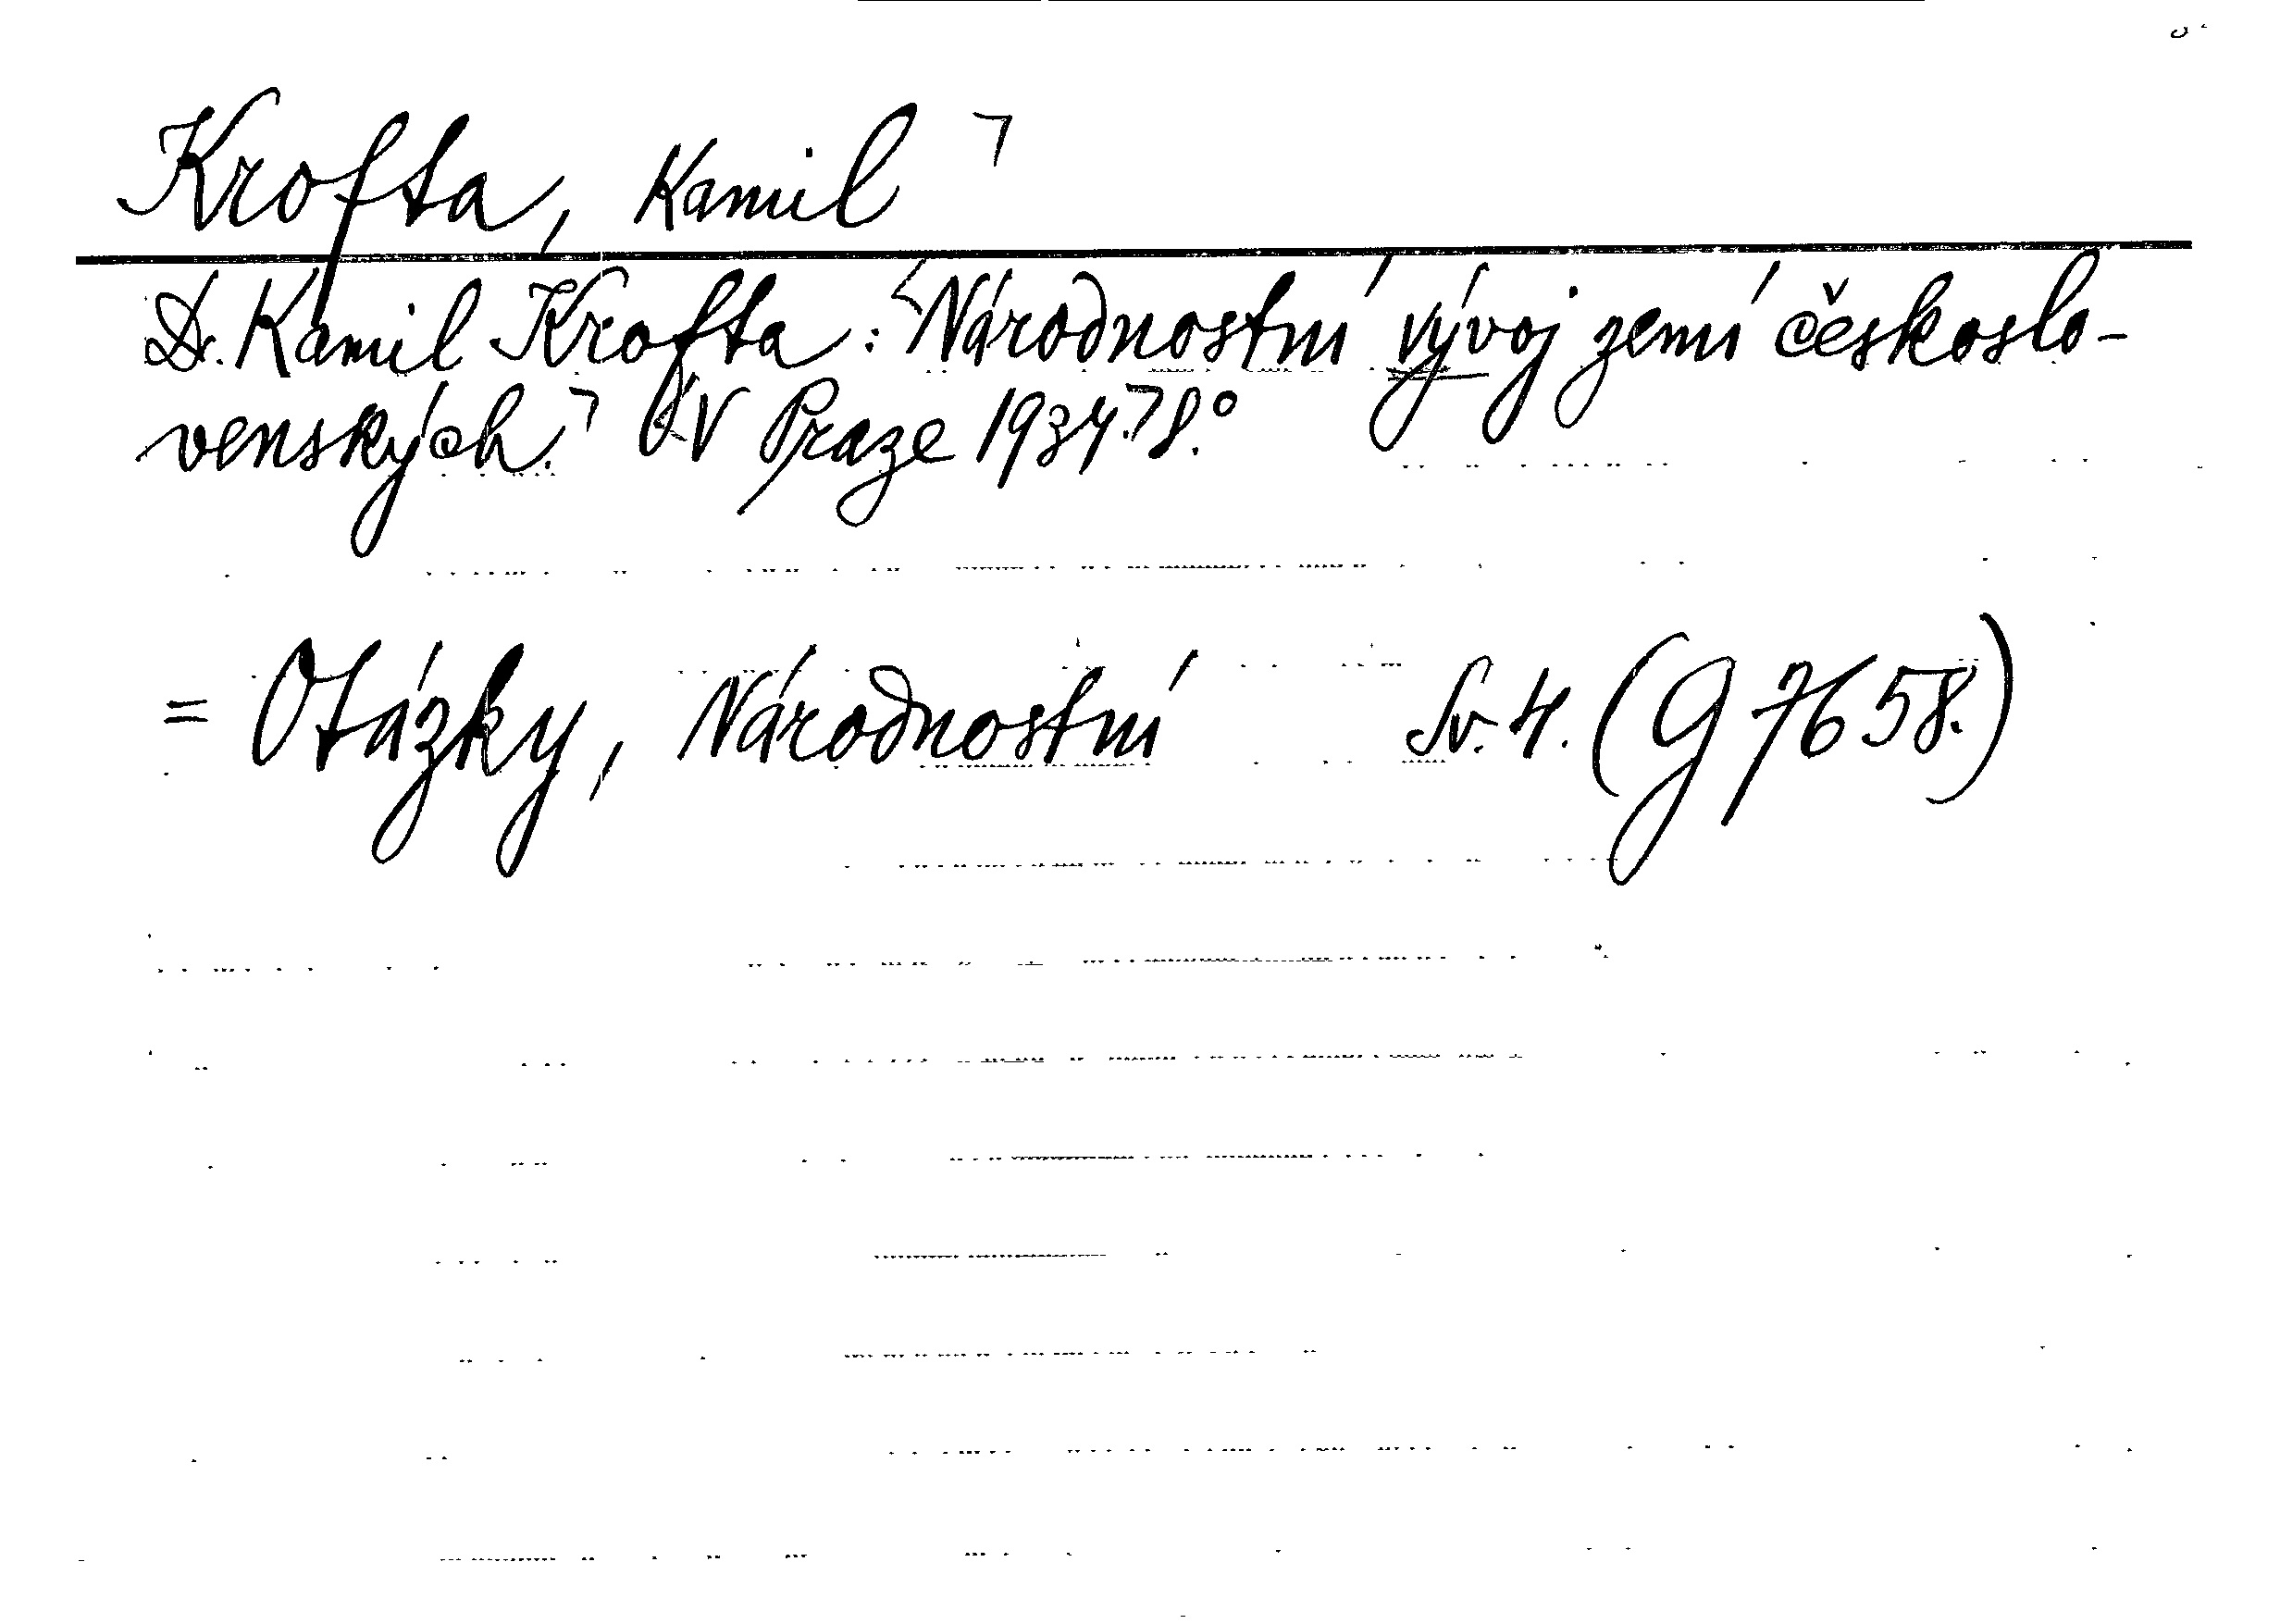 Krofta, Kamil
Dr. Kamil Krofta: Národnostní vývoj zemí českoslo-
venských. V Praze 1934. 8.°
= Otázky, Národnostní Sv. 4. (G 7658.)